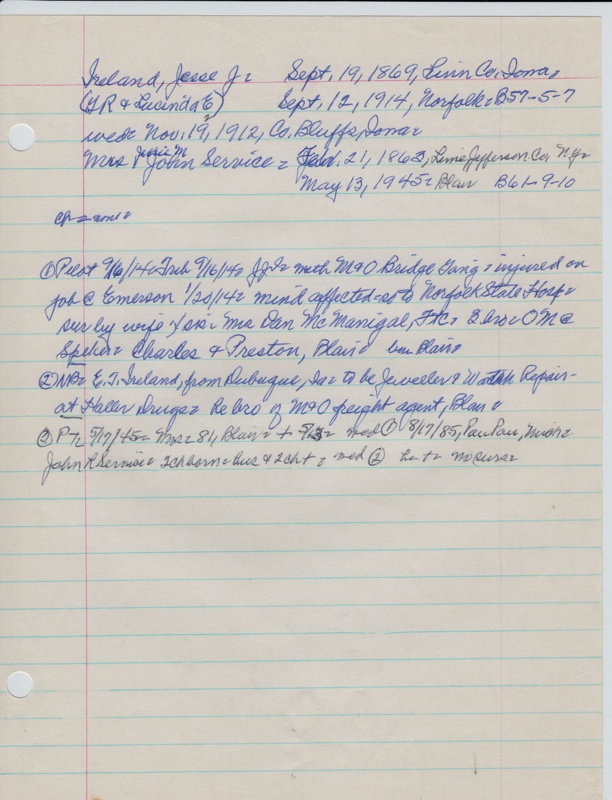 Ireland, Jesse J= Sept. 19, 1869, Linn Co, Iowa=
(J R & Lucinda E) Sept. 12, 1914, Norfolk= B57-5-7
wed= Nov. 19, 1912, Co. Bluffs, Iowa=
Mrs Jessie M John Service= 21, 1863, Lime Jefferson Co, N.Y=
May 13, 1945= Blair B61-9-10
① Pilot 9/16/14= Trib 9/16/14= J J I= with M&O Bridge Gang= injured on
job @ Emerson 1/20/14= mind affected= to Norfolk State Hosp=
sur by wife & sis= Mrs Dan McManigal, 2 bros= O M @
Charles & Preston, Blair= bur Blair=
② E. J. Ireland, from Dubuque, Ia= to be Jeweler & Watch Repair-
at Haller Drugs= He bro of M&O freight agent, Blair=
③ P T= 5/17/45= Mrs= 81, Blair= + 5/13= wed ① 8/17/85, Paw Paw, Mich=
John R Service= 2 ch born= hus & 2 ch += wed ②